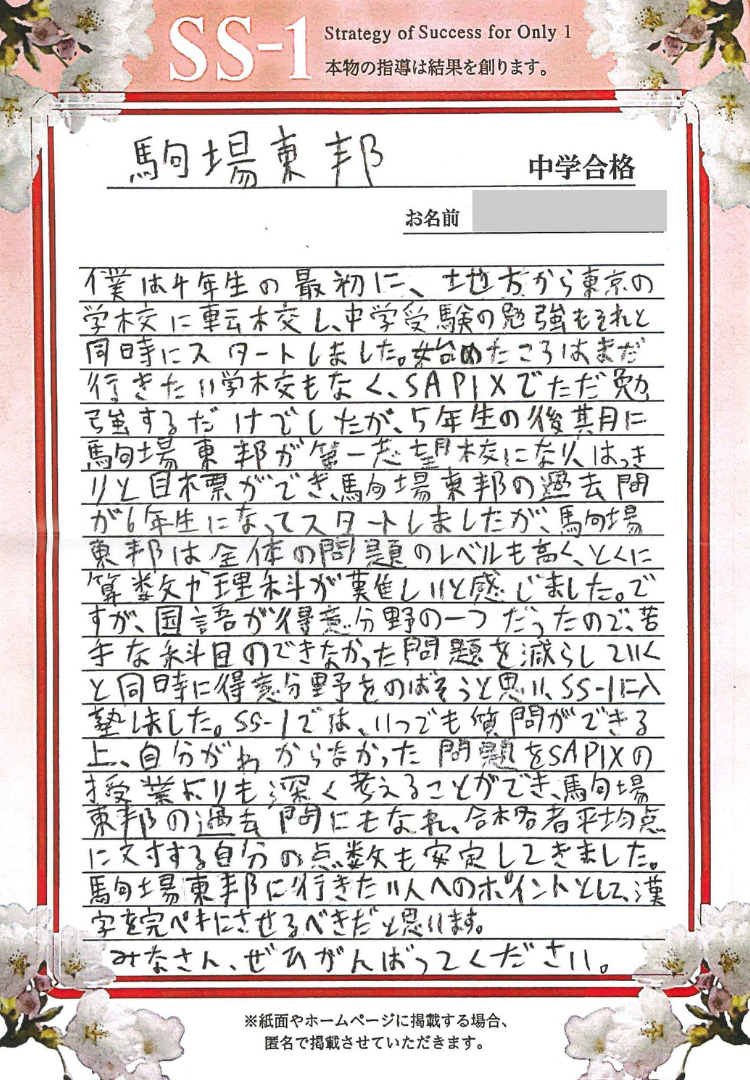 SS-1 Strategy of Success for Only 1
本物の指導は結果を創ります。
駒場東邦 中学合格
お名前
僕は4年生の最初に、地方から東京の
学校に転校し、中学受験の勉強もそれと
同時にスタートしました。始めたころはまだ
行きたい学校もなく、SAPIXでただ勉
強するだけでしたが、5年生の後期に
駒場東邦が第一志望校になり、はっき
りと目標ができ、駒場東邦の過去問
が6年生になってスタートしましたが、駒場
東邦は全体の問題のレベルも高く、とくに
算数や理科が難しいと感じました。で
すが、国語が得意分野の一つだったので、苦
手な科目のできなかった問題を減らしていく
と同時に得意分野をのばそうと思い、SS-1に入
塾しました。SS-1では、いつでも質問ができる
上、自分がわからなかった問題をSAPIXの
授業よりも深く考えることができ、駒場
東邦の過去問にもなれ、合格者平均点
に対する自分の点数も安定してきました。
駒場東邦に行きたい人へのポイントとして、漢
字を完ペキにさせるべきだと思います。
みなさん、ぜひがんばってください。
※紙面やホームページに掲載する場合、
匿名で掲載させていただきます。